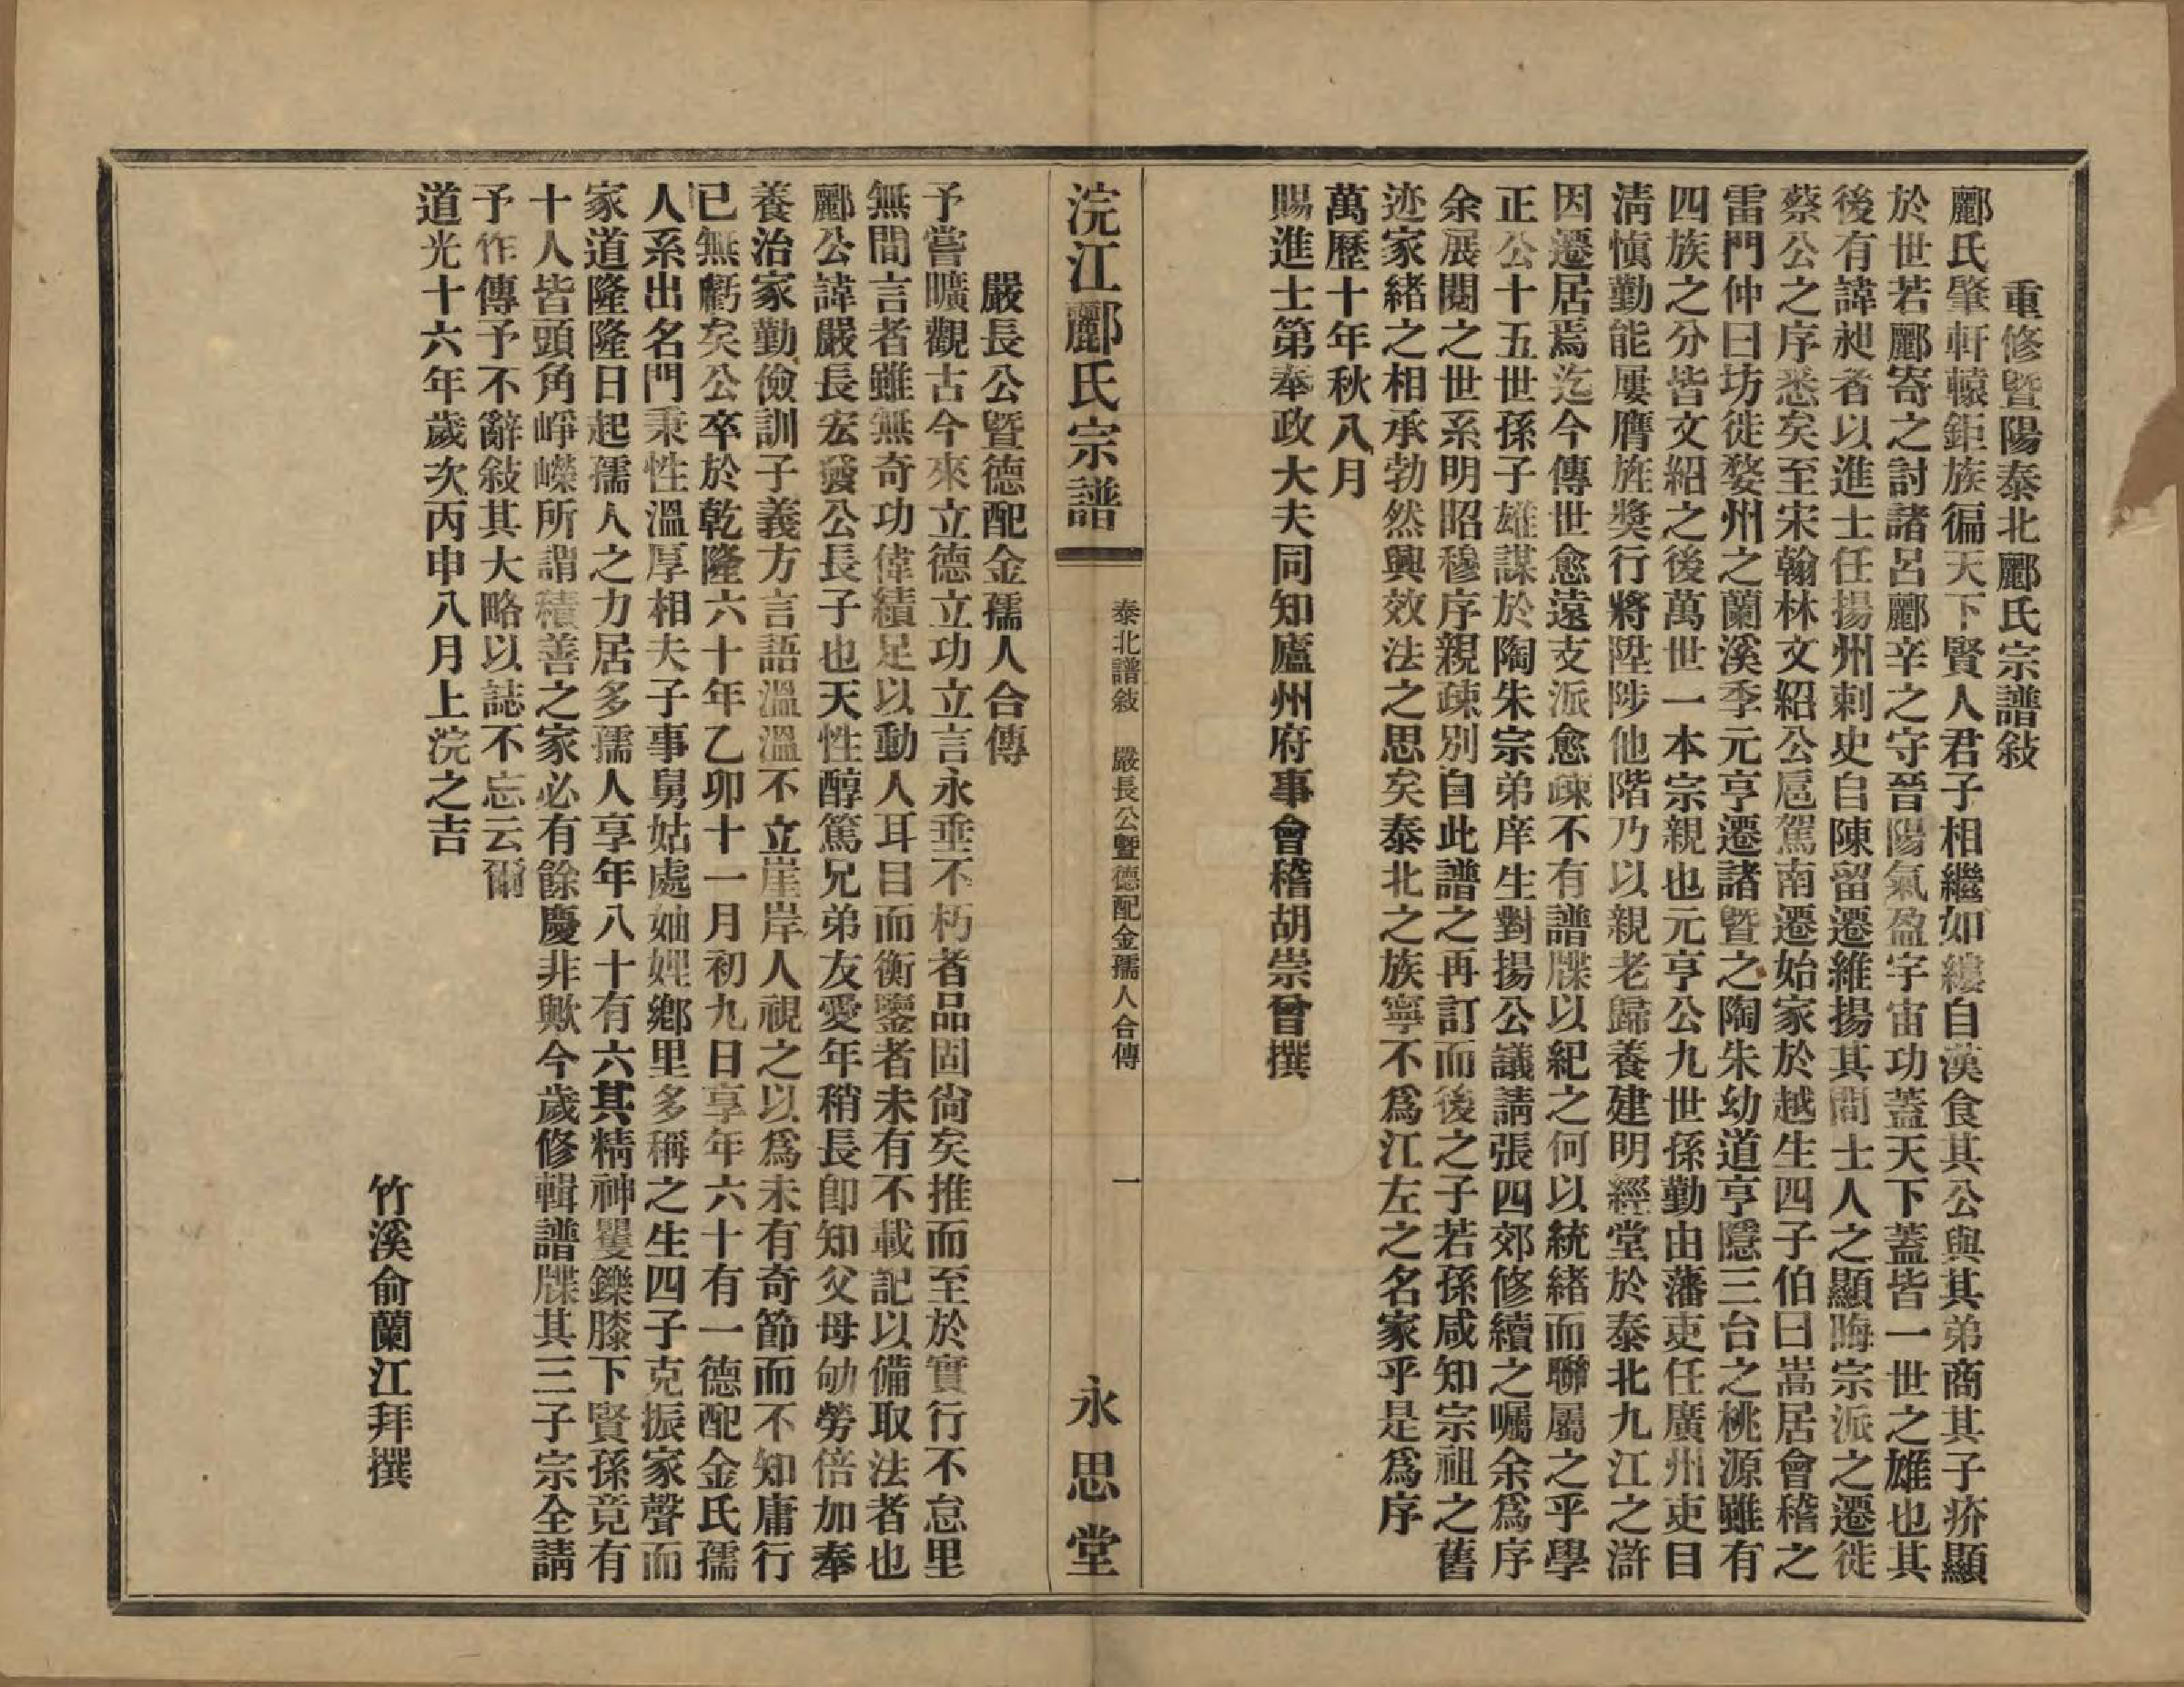 重修暨陽泰北酈氏宗譜敍
酈氏肇軒轅鉅族徧天下賢人君子相繼如縷自漢食其公與其弟商其子疥顯
於世若酈寄之討諸呂酈辛之守晉陽氣盈宇宙功蓋天下蓋皆一世之雄也其
後有諱昶者以進士任揚州刺史自陳留遷維揚其間士人之顯晦宗派之遷徙
蔡公之序悉矣至宋翰林文紹公扈駕南遷始家於越生四子伯曰嵩居會稽之
雷門仲曰坊徙婺州之蘭溪季元亨遷諸暨之陶朱幼道亨隱三台之桃源雖有
四族之分皆文紹之後萬世一本宗親也元亨公九世孫勤由藩吏任廣州吏目
淸愼勤能屢膺旌獎行將陞陟他階乃以親老歸養建明經堂於泰北九江之滸
因遷居焉迄今傳世愈遠支派愈疎不有譜牒以紀之何以統緒而聯屬之乎學
正公十五世孫子雄謀於陶朱宗弟庠生對揚公議請張四郊修續之囑余爲序
余展閱之世系明昭穆序親疎別自此譜之再訂而後之子若孫咸知宗祖之舊
迹家緒之相承勃然興效法之思矣泰北之族寧不爲江左之名家乎是爲序
萬歷十年秋八月
賜進士第奉政大夫同知廬州府事會稽胡崇曾撰
浣江酈氏宗譜
泰北譜敍　嚴長公暨德配金孺人合傳
一
永思堂
嚴長公暨德配金孺人合傳
予嘗曠觀古今來立德立功立言永垂不朽者品固尙矣推而至於實行不怠里
無間言者雖無奇功偉績足以動人耳目而衡鑒者未有不載記以備取法者也
酈公諱嚴長宏發公長子也天性醇篤兄弟友愛年稍長卽知父母劬勞倍加奉
養治家勤儉訓子義方言語溫溫不立崖岸人視之以爲未有奇節而不知庸行
已無虧矣公卒於乾隆六十年乙卯十一月初九日享年六十有一德配金氏孺
人系出名門秉性溫厚相夫子事舅姑處妯娌鄉里多稱之生四子克振家聲而
家道隆隆日起孺人之力居多孺人享年八十有六其精神矍鑠膝下賢孫竟有
十人皆頭角崢嶸所謂積善之家必有餘慶非歟今歲修輯譜牒其三子宗全請
予作傳予不辭敍其大略以誌不忘云爾
道光十六年歲次丙申八月上浣之吉
竹溪俞蘭江拜撰